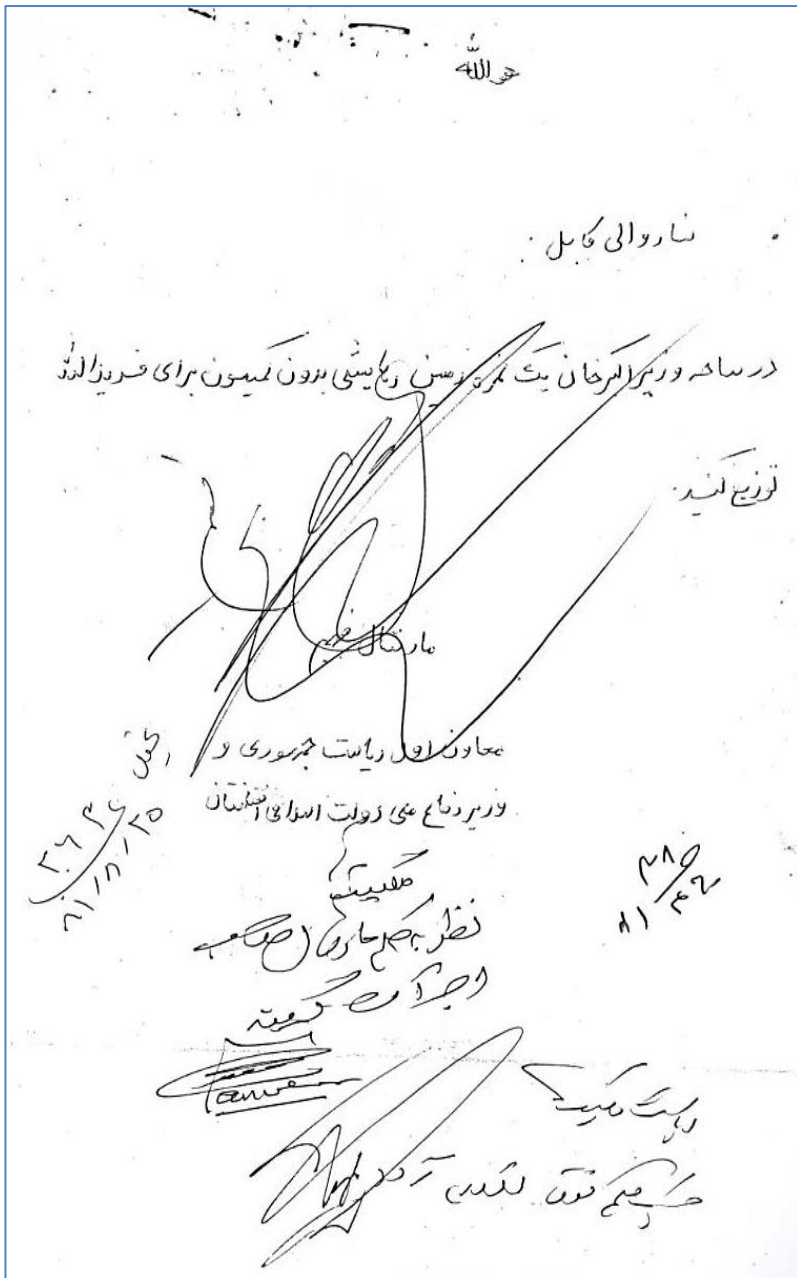 هوالله
ښاروالی کابل.
در ساحه وزیراکبرخان یک نمره زمین رهایشی بدون کمیسون برای فرید الله
توزیع کنید.
مارشال فهیم
معاون اول ریاست جمهوری و
وزیر دفاع ملی دولت اسلامی افغانستان
۸۱/۸/۲۵
ملکیتها
نظر به حکم مارشال صاحب
اجراآت گرفته
ریاست ملکیت
حسب حکم فوق